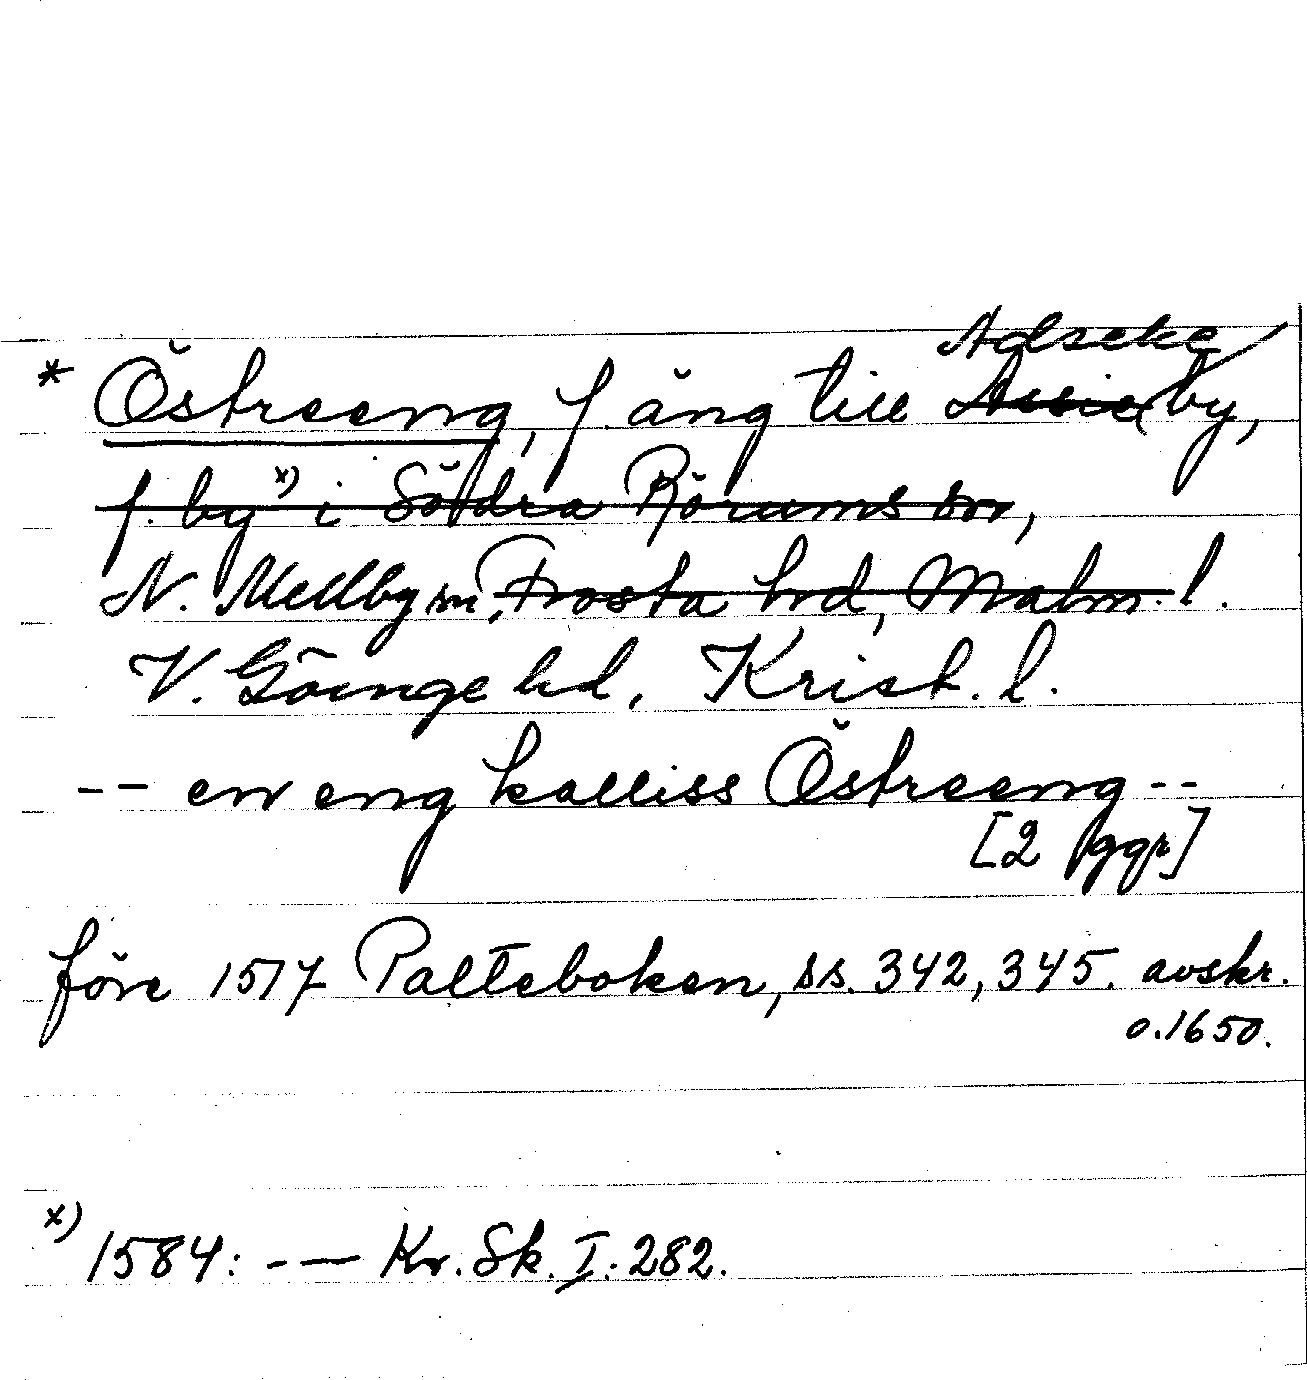 Adseke
* Östreeng, f. äng till Assie by,
f. by x) i Södra Rörums sn,
N. Mellby sn, Frosta hd, Malm. l.
V. Göinge hd, Krist. l.
-- en eng kalliss Östreeng --
[2 ggr]
före 1517 Palteboken, ss. 342, 345. avskr.
o. 1650.
x) 1584: -— Kr. Sk. I: 282.